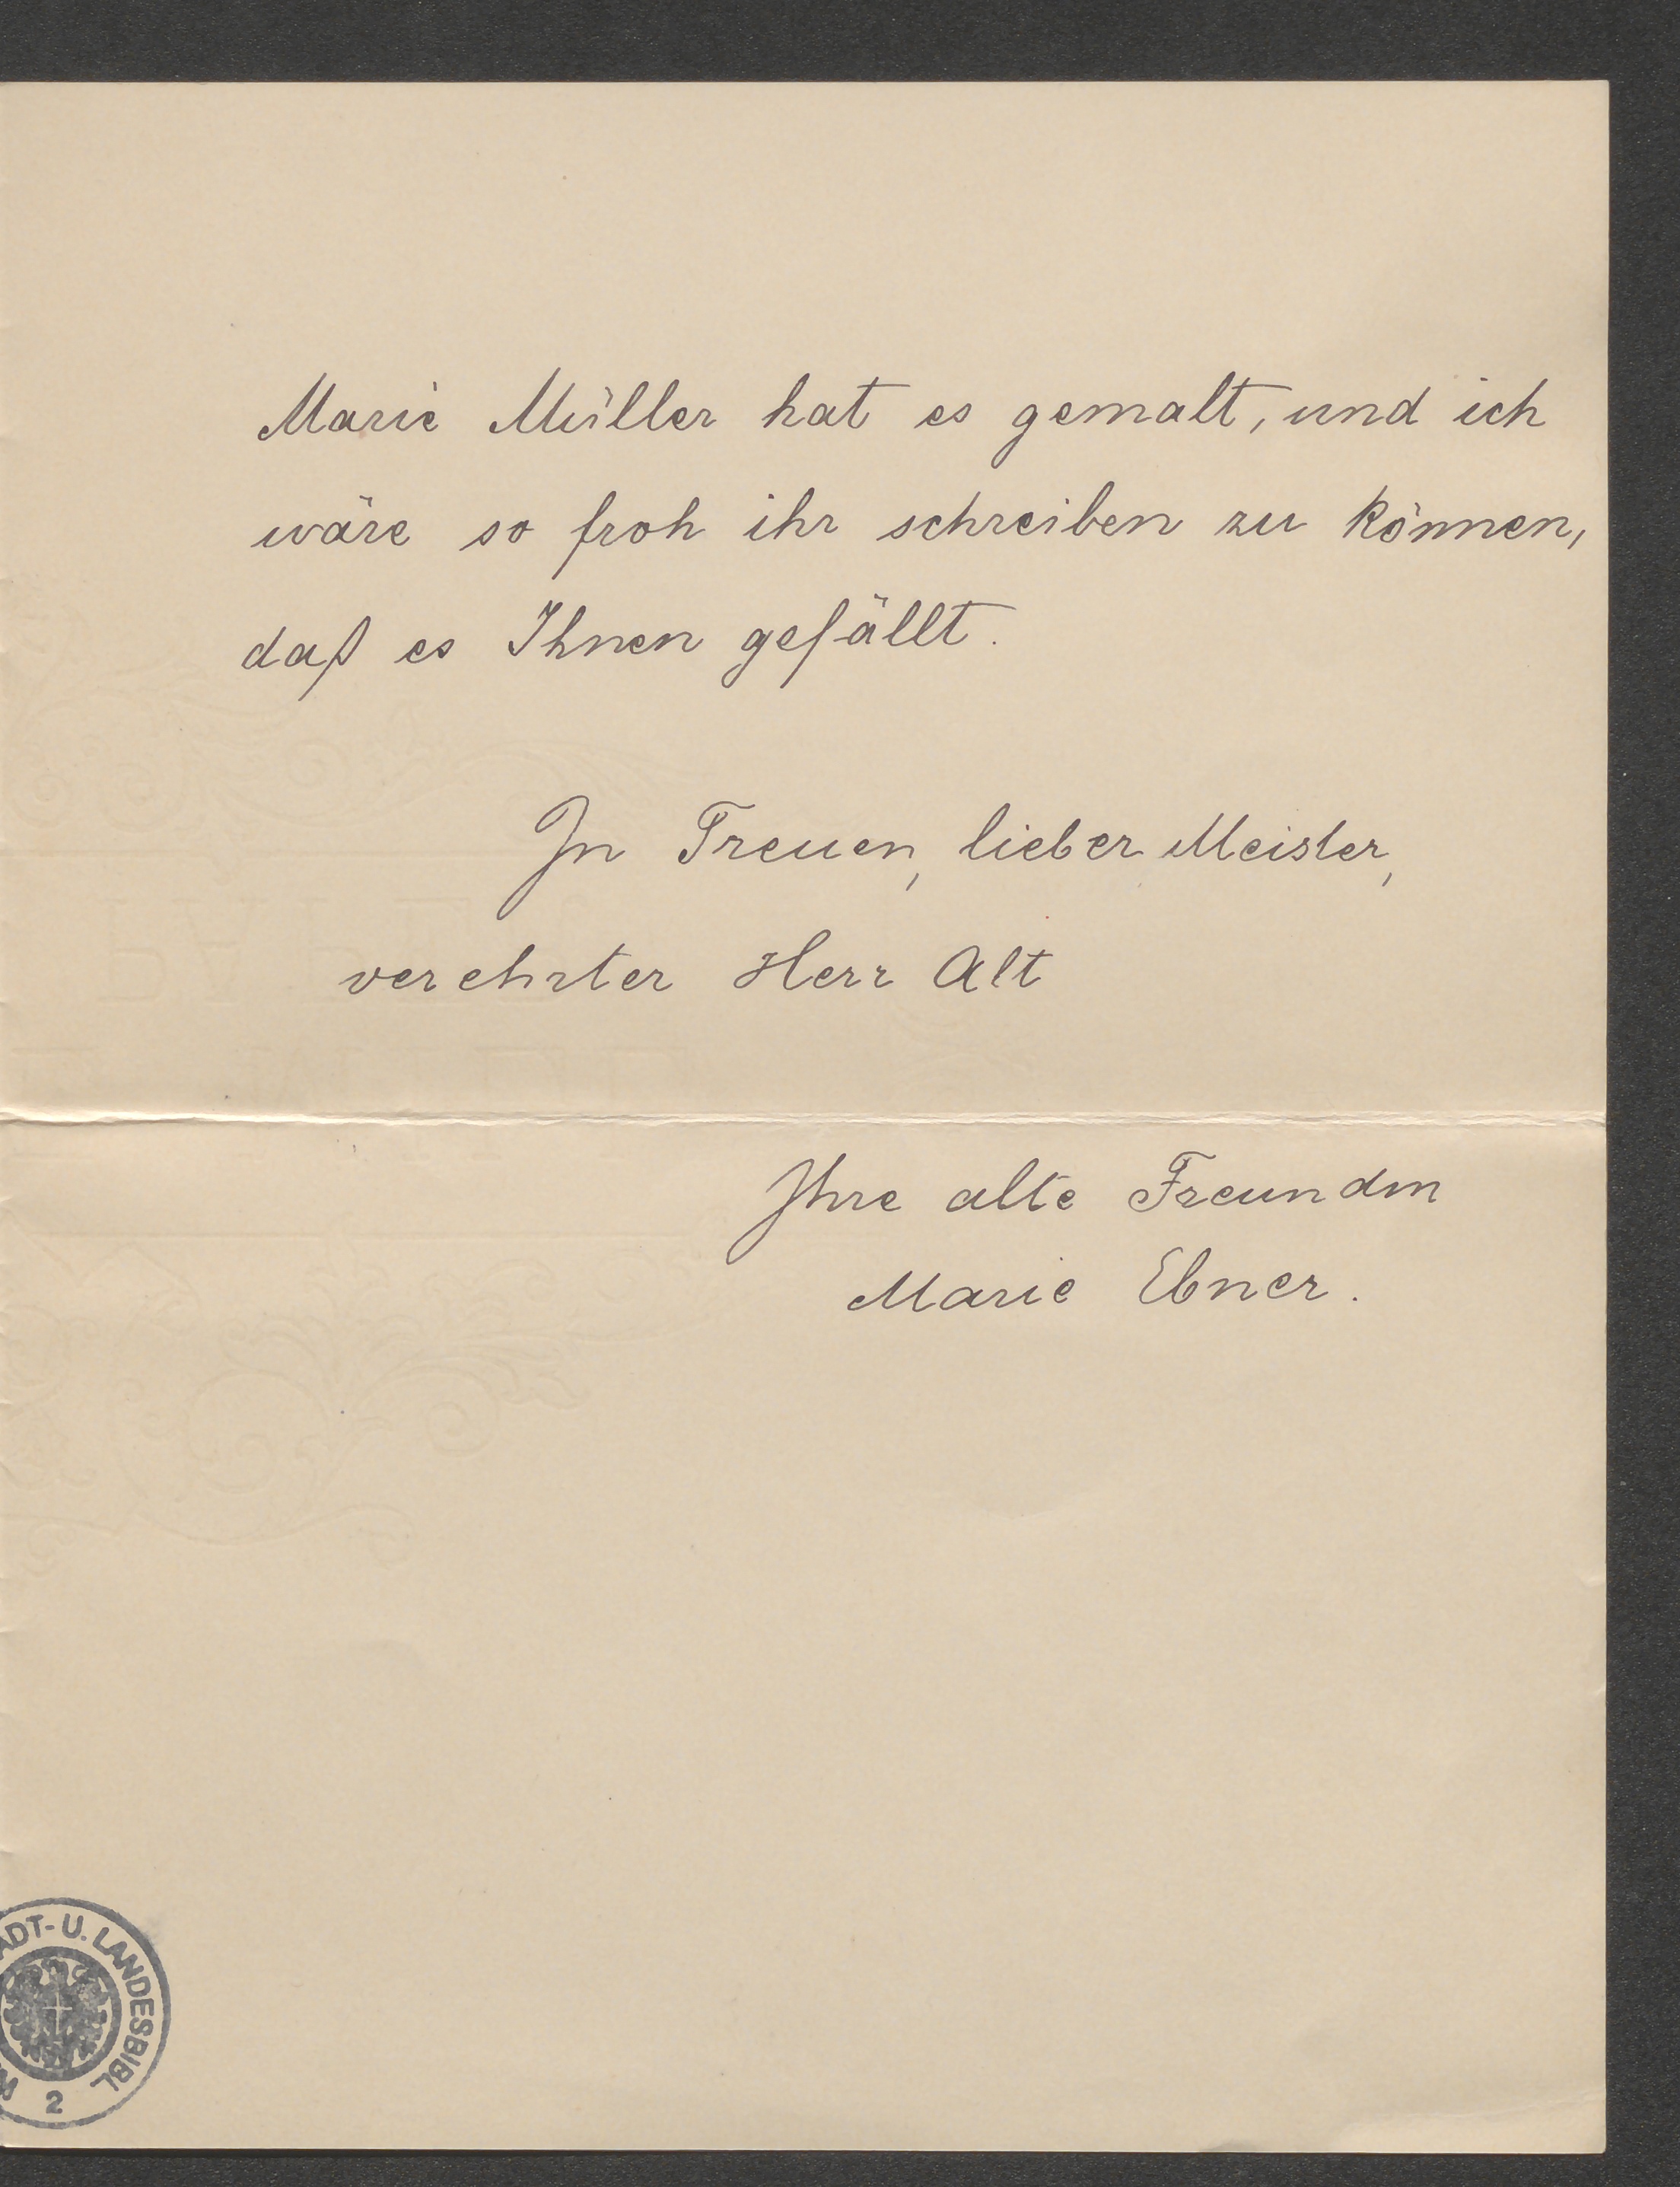 Marie Müller hat es gemalt, und ich
wäre so froh ihr schreiben zu können,
daß es Ihnen gefällt.
In Treuen, lieber Meister,
verehrter Herr Alt
Ihre alte Freundin
Marie Ebner.
ADT- U. LANDESBIBL
2